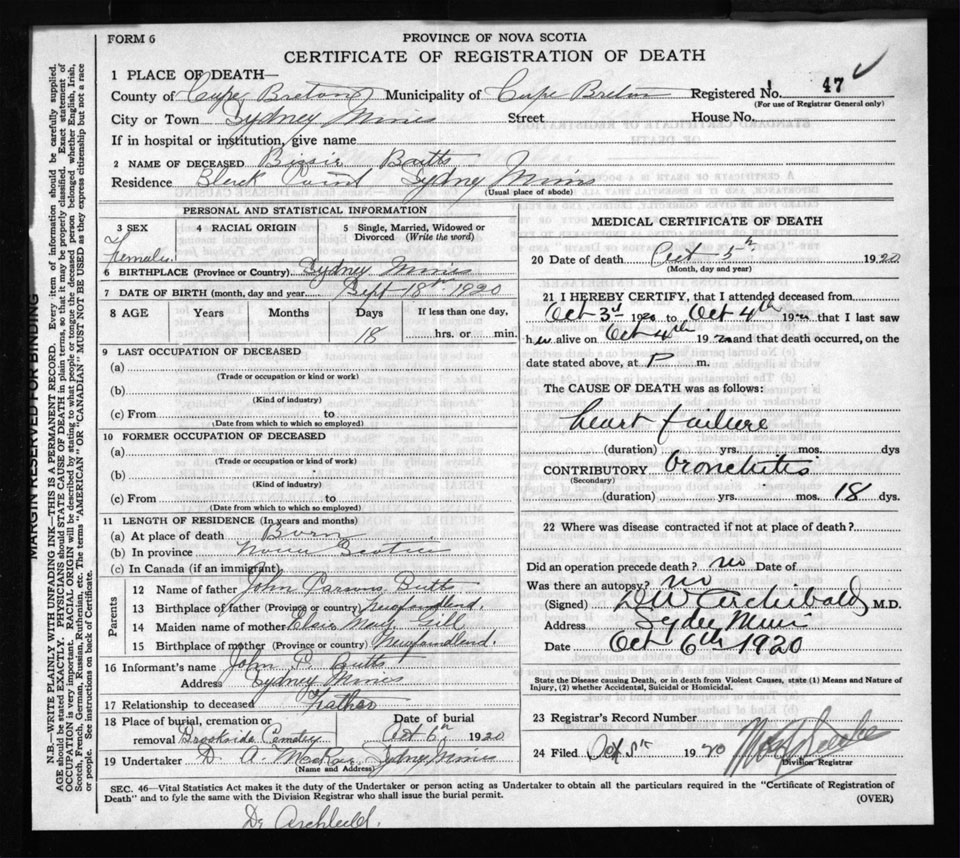 FORM 6
PROVINCE OF NOVA SCOTIA
CERTIFICATE OF REGISTRATION OF DEATH
1 PLACE OF DEATH—
County of Cape Breton Municipality of Cape Breton Registered No. 47
(For use of Registrar General only)
City or Town Sydney Mines Street House No.
If in hospital or institution, give name
2 NAME OF DECEASED Butts
Residence Black Point Sydney Mines
(Usual place of abode)
PERSONAL AND STATISTICAL INFORMATION
3 SEX 4 RACIAL ORIGIN 5 Single, Married, Widowed or
Divorced (Write the word)
Female.
6 BIRTHPLACE (Province or Country) Sydney Mines
7 DATE OF BIRTH (month, day and year) Sept 18th 1920
8 AGE Years Months Days If less than one day,
18 hrs. or min.
9 LAST OCCUPATION OF DECEASED
(a)
(Trade or occupation or kind or work)
(b)
(Kind of industry)
(c) From to
(Date from which to which so employed)
10 FORMER OCCUPATION OF DECEASED
(a)
(Trade or occupation or kind of work)
(b)
(Kind of industry)
(c) From to
(Date from which to which so employed)
11 LENGTH OF RESIDENCE (In years and months)
(a) At place of death Born
(b) In province Nova Scotia
(c) In Canada (if an immigrant)
Parents
12 Name of father John Parsons Butts
13 Birthplace of father (Province or country) Newfoundland.
14 Maiden name of mother May Gill
15 Birthplace of mother (Province or country) Newfoundland.
16 Informant's name John P. Butts
Address Sydney Mines
17 Relationship to deceased Father
18 Place of burial, cremation or Date of burial
removal Brookside Cemetery Oct 6th 1920
19 Undertaker D. A. Sydney Mines
(Name and Address)
MEDICAL CERTIFICATE OF DEATH
20 Date of death Oct 5th 1920
(Month, day and year)
21 I HEREBY CERTIFY, that I attended deceased from
Oct 3rd 1920 to Oct 4th 1920 that I last saw
her alive on Oct 4th 1920 and that death occurred, on the
date stated above, at P m.
The CAUSE OF DEATH was as follows:
heart failure
(duration) yrs. mos. dys
CONTRIBUTORY bronchitis
(Secondary)
(duration) yrs. mos. 18 dys.
22 Where was disease contracted if not at place of death?
Did an operation precede death? no Date of
Was there an autopsy? no
(Signed) D W Archibald M.D.
Address Sydney Mines
Date Oct 6th 1920
State the Disease causing Death, or in death from Violent Causes, state (1) Means and Nature of
Injury, (2) whether Accidental, Suicidal or Homicidal.
23 Registrar's Record Number
24 Filed Oct 1920
Division Registrar
SEC. 46—Vital Statistics Act makes it the duty of the Undertaker or person acting as Undertaker to obtain all the particulars required in the "Certificate of Registration of
Death" and to fyle the same with the Division Registrar who shall issue the burial permit.
(OVER)
Dr Archibald.
MARGIN RESERVED FOR BINDING
N.B.—WRITE PLAINLY WITH UNFADING INK—THIS IS A PERMANENT RECORD. Every item of information should be carefully supplied.
AGE should be stated EXACTLY. PHYSICIANS should STATE CAUSE OF DEATH in plain terms, so that it may be properly classified. Exact statement of
OCCUPATION is very important. RACIAL ORIGIN will be described by stating to what people or tongue the deceased person belonged whether English, Irish,
Scotch, French, German, Russian, Ruthenian, etc. The terms "AMERICAN" OR "CANADIAN" MUST NOT BE USED as they express citizenship but not a race
or people. See instructions on back of Certificate.